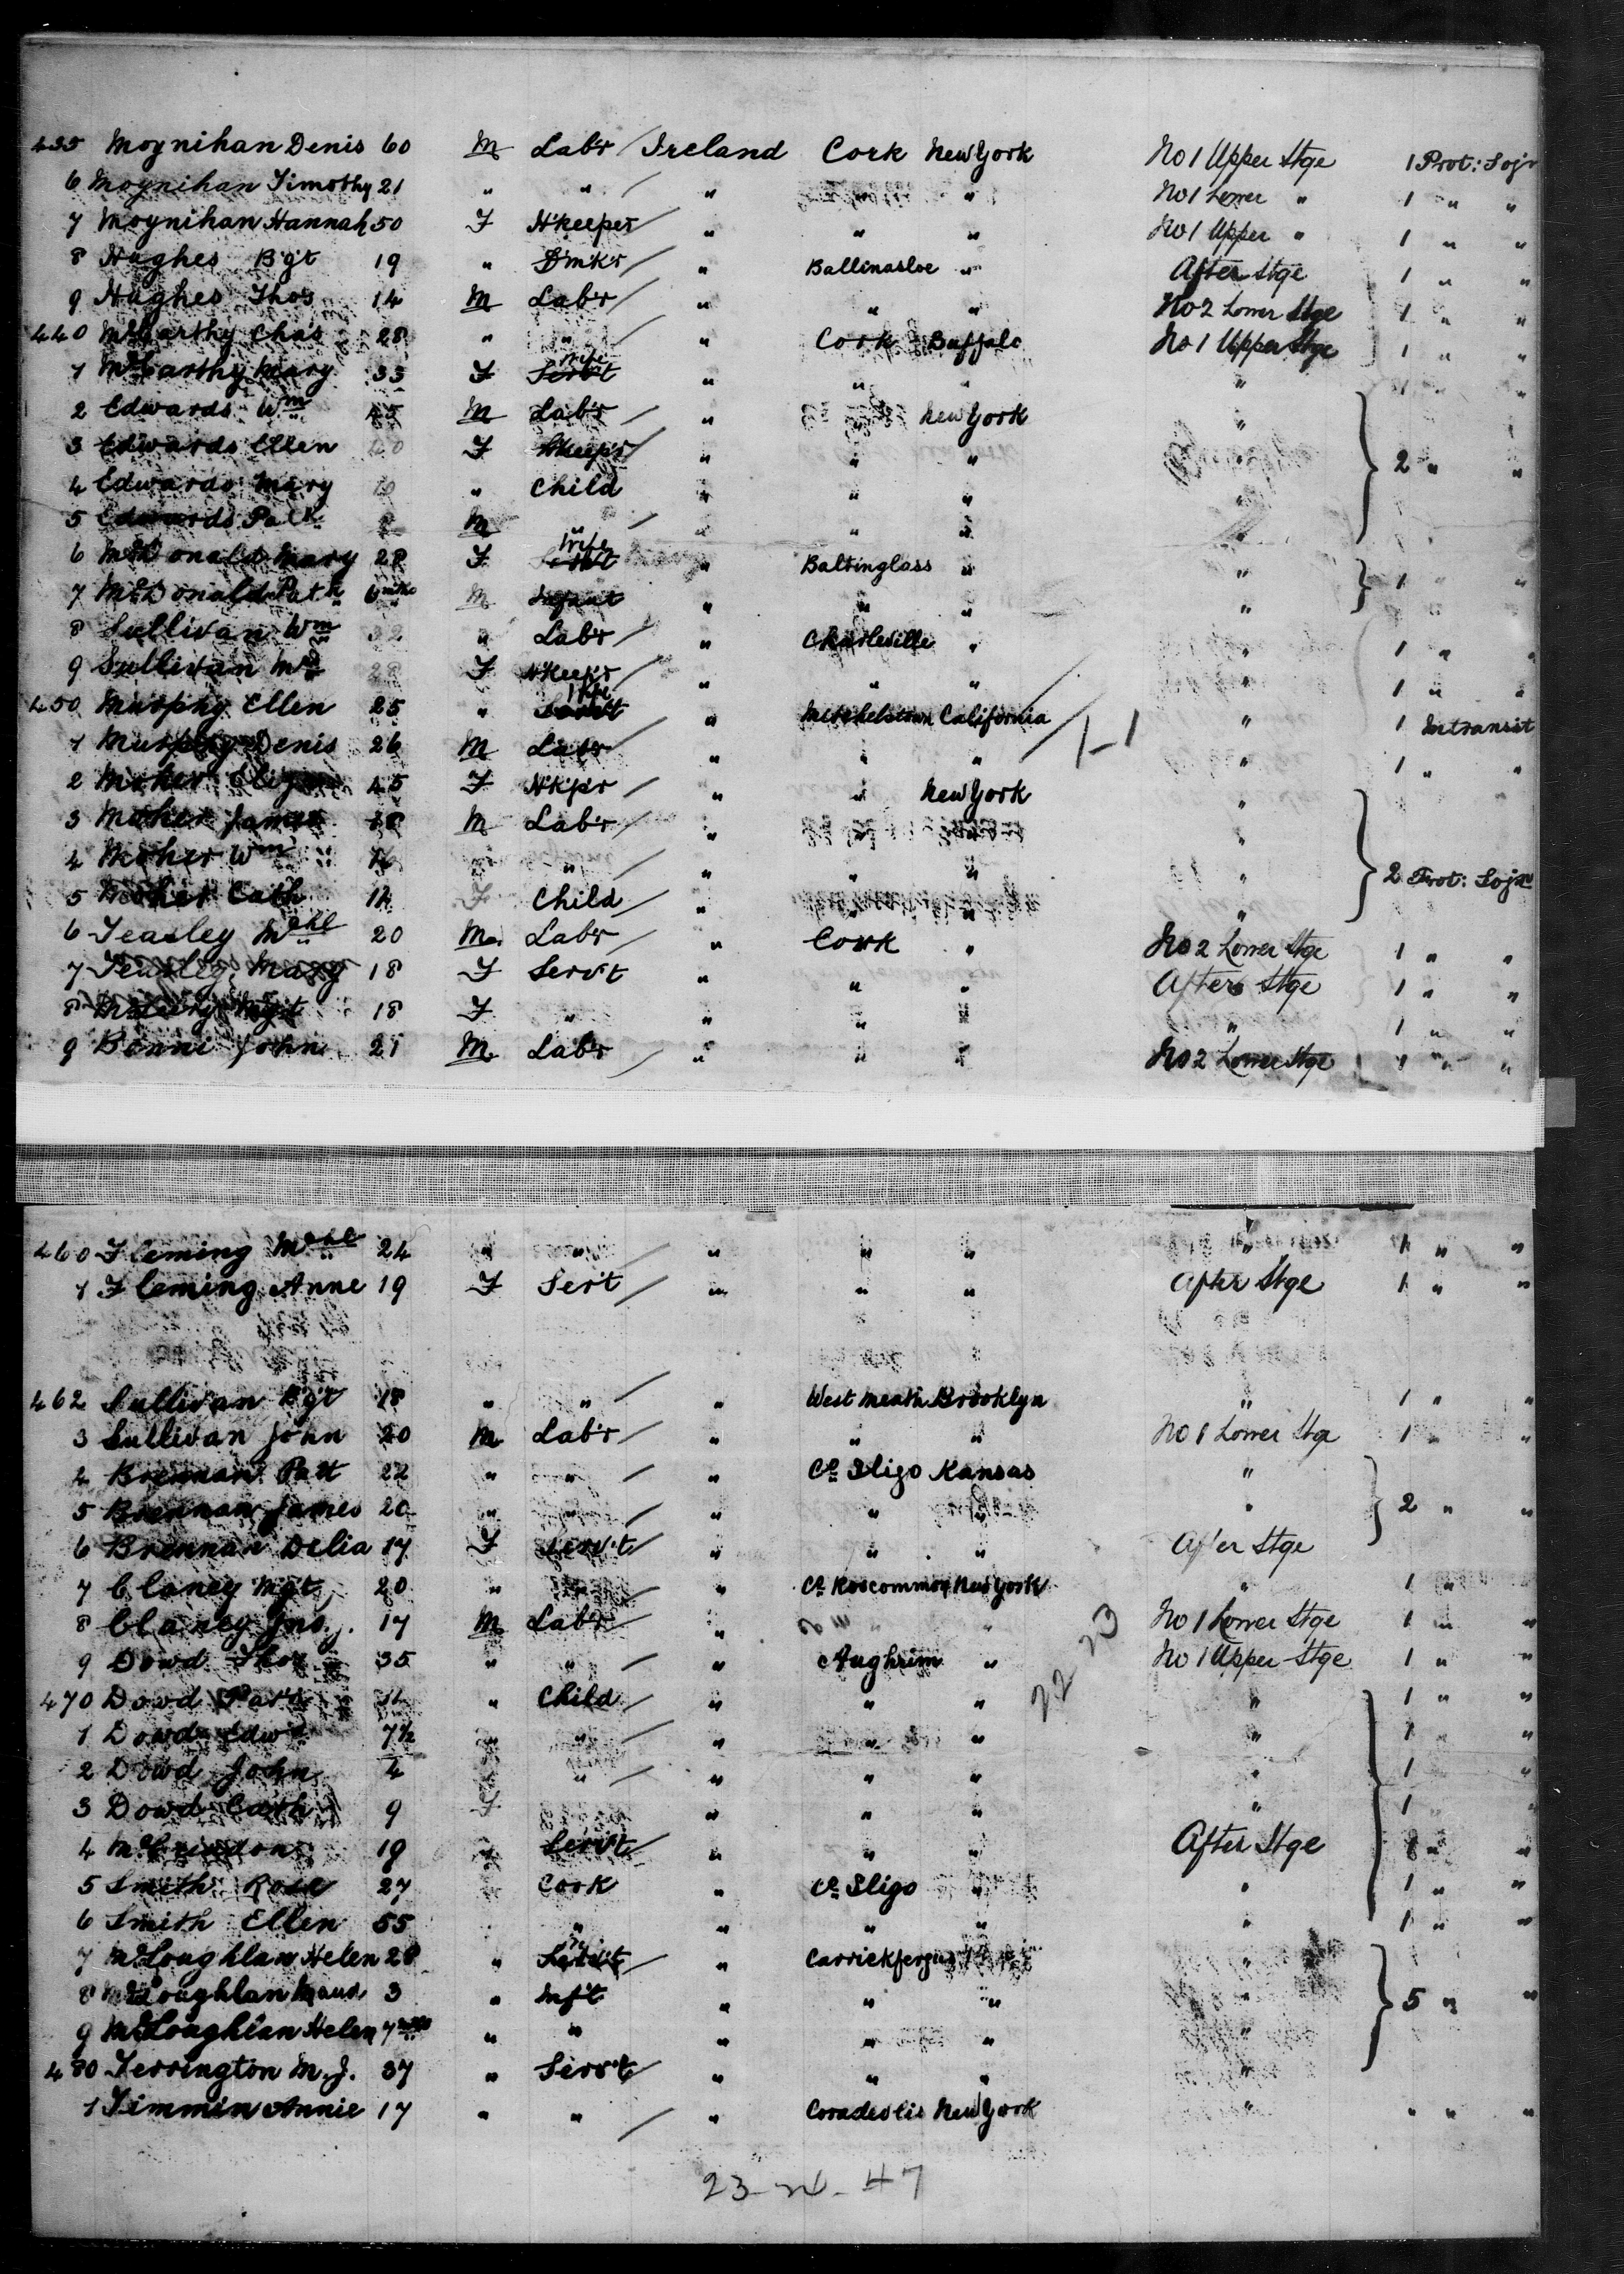 435 Moynihan Denis 60 M Lab'r / Ireland Cork New York No 1 Upper Stge 1 Prot: Sojr
6 Moynihan Timothy 21 " " / " " No 1 Lower " 1 " "
7 Moynihan Hannah 50 F H'keeper / " " " No 1 Upper " 1 " "
8 Hughes Bgt 19 " D'mk'r / " Ballinasloe " After Stge 1 " "
9 Hughes Thos 14 M Lab'r / " " " No 2 Lower Stge 1 " "
440 McCarthy Chas 28 " " / " Cork Buffalo No 1 Upper Stge 1 " "
1 McCarthy Mary 33 F Wife " " " " 1 " "
2 Edwards Wm 45 M Lab'r / " New York "
3 Edwards Ellen 40 F H'keep'r / " " " " 2 " "
4 Edwards Mary " Child " " " "
5 Edwards Patk M " / " " " "
6 McDonald Mary 28 F Wife " Baltinglass " " 1 " "
7 McDonald Patk 6 mths M Infant " " " "
8 Sullivan Wm 32 " Lab'r / " Charleville " " 1 " "
9 Sullivan 28 F H'Keep'r / " " " " 1 " "
450 Murphy Ellen 25 " Wife " Mitchelstown California / 1-1 " 1 Intransit
1 Murphy Denis 26 M Lab'r / " " " " 1 " "
2 Moher Eliza 45 F H'k'p'r / " " New York "
3 Moher James 18 M Lab'r / " " " "
4 Moher Wm 16 " / " " " " 2 Prot: Sojr
5 Moher Cath 14 F Child / " " " "
6 Feasley Mchl 20 M Lab'r / " Cork " No 2 Lower Stge 1 " "
7 Feasley Mary 18 F Serv't " " " After Stge 1 " "
8 Mgt 18 F " " " " " 1 " "
9 Bonni John 21 M Lab'r / " " " No 2 Lower Stge 1 " "
460 Fleming Mchl 24 " " / " " " " 1 " "
1 Fleming Anne 19 F Ser't / " " " After Stge 1 " "
462 Sullivan Bgt 18 " " / " West Meath Brooklyn " 1 " "
3 Sullivan John 20 M Lab'r / " " " No 1 Lower Stge 1 " "
4 Brennan Patt 22 " " / " Co Sligo Kansas "
5 Brennan James 20 " " / " " " " 2 " "
6 Brennan Delia 17 F Serv't / " " " After Stge
7 Claney Mgt 20 " " / " Co Roscommon New York " 1 " "
8 Claney Jno. J. 17 M Lab'r / " " " No 1 Lower Stge 1 " "
9 Dowd Thos 35 " " / " Aughrim " No 1 Upper Stge 1 " "
22 23
470 Dowd Patk 11 " Child / " " " " 1 " "
1 Dowd Edwd 7½ " " / " " " " 1 " "
2 Dowd John 4 " / " " " " 1 "
3 Dowd Cath 9 F " " " " 1 " "
4 19 " Serv't / " " " After Stge 1 " "
5 Smith Rose 27 Cook " Co Sligo " " 1 " "
6 Smith Ellen 55 " " " " " " 1 " "
7 McLoughlan Helen 28 " / " Carrickfergus "
8 McLoughlan Maud 3 " Inf't " " " " 5 " "
9 McLoughlan Helen 7 mths " " " " " "
480 Ferrington M. J. 37 " Serv't / " " " "
1 Timmin Annie 17 " " / " New York " " " "
23 47